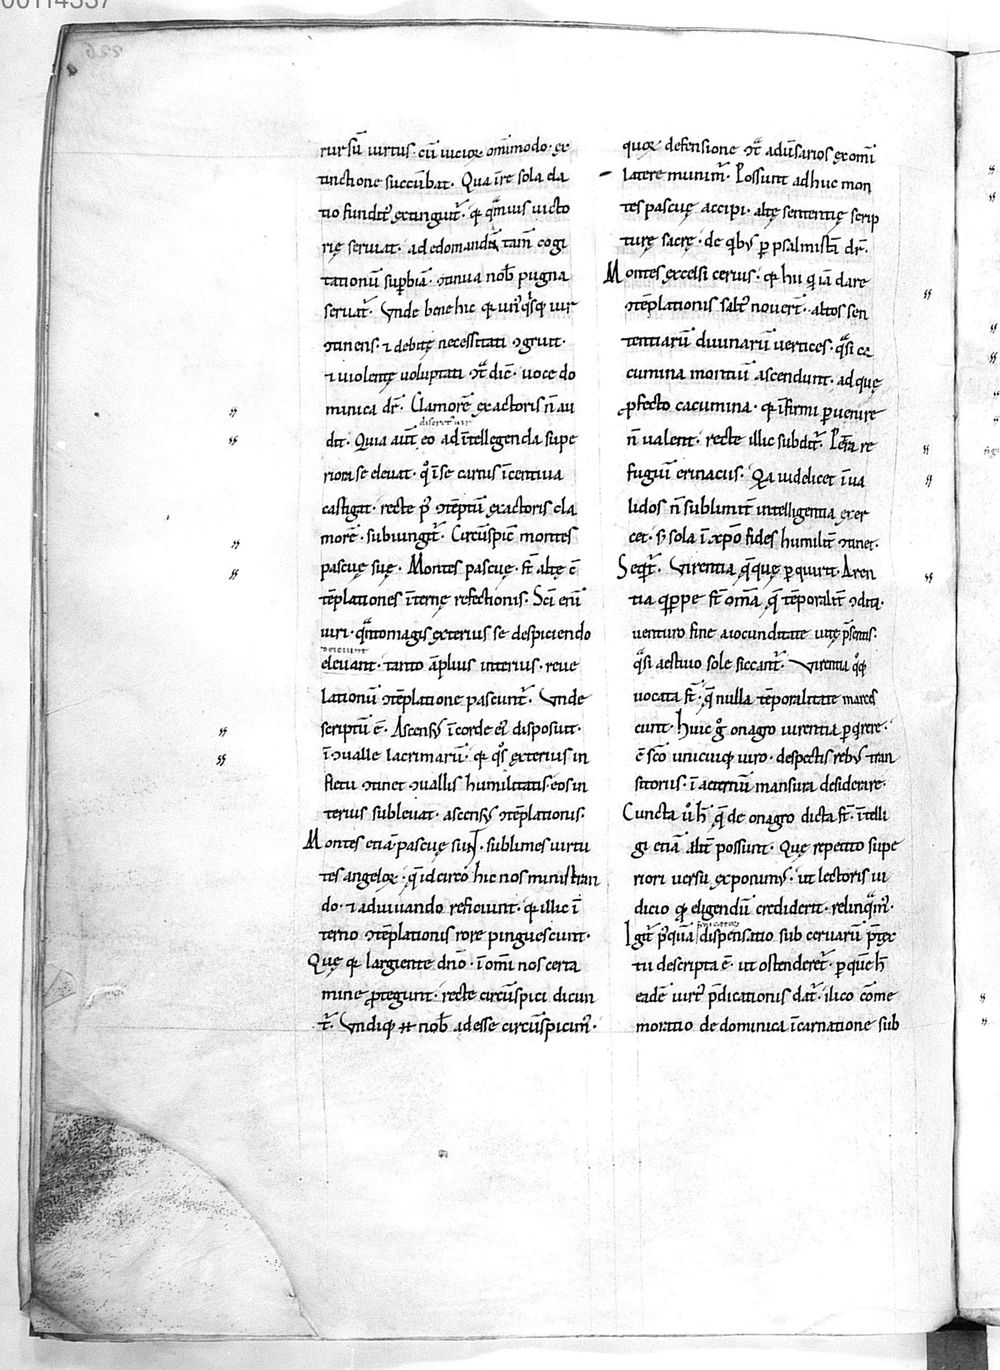 rursū uirtus· cū uicioꝝ om̄imodo· ex
tinctione succūbat· Qua īre sola cla
tio fundit᷑ extinguit᷑· ꝙ q̄muis uicto
rię seruiat· ad edomandā tam̄ cogi
tationū suꝑbiā· ↄtinua nob̄ pugna
seruat᷑· Vnde bene hic
ↄtinens· ⁊ debitę necessitati ↄgruit·
⁊ uiolentę uoluptati ↄt̄ dic̄· uoce do
minica dr̄· Clamorē exactoris n̄ au
discret᷑ uir
dit· Quia aut̄ eo ad ītellegenda supe
riora se eleuat· qͦ ī se carnis īcentiua
castigat· recte p̄ ↄtēptū exactoris cla
morē· subiungit᷑· Circūspic̄ montes
pascuę suę· Montes pascuę· st̄ altę ↄ
tēplationes īternę refectionis· Sc̄i eni
uiri· q̄ntomagis exterius se despiciendo
deiciunt
eleuant· tanto āplius interius· reue
lationū ↄtēplatione pascunt᷑· Vnde
scriptū ē· Ascensꝰ ī corde ei᷑ disposuit·
ī ↄualle lacrimarū· ꝙ qͦs exterius in
fletu ↄtinet ↄuallis humilitatis· eos in
terius subleuat· ascensꝰ ↄtēplationis·
Montes etiā pascuę sunt· sublimes uirtu
tes angeloꝝ· q̄ idcirco hic nos ministran
do· ⁊ adiuuando reficiunt· ꝙ illic ī
terno ↄtēplationis rore pinguescunt·
Quę ꝙ largiente dn̄o· ī om̄i nos certa
mine ꝓtegunt· recte circūspici dicun
t᷑· Vndiqꝫ H nob̄ adesse circūspicim᷒·
quoꝝ defensione ↄt̄ aduersarios ex om̄i
latere munim᷑· Possunt adhuc mon
tes pascuę accipi· altę sententię scrip
turę sacrę· de qͥbꝰ ꝑ psalmistā dr̄·
Montes excelsi ceruis· ꝙ hii q iā dare
ↄtēplationis salt᷑ nouer̄t· altos sen
tentiarū diuinarū uertices· q̄si ca
cumina montiū ascendunt· ad quę
ꝓfecto cacumina· ꝙ īfirmi ꝑuenire
n̄ ualent· recte illic subdit᷑· Petra re
fugiū erinaciis· Qa uidelicet īua
lidos n̄ sublimit᷑ intelligentia exer
cet· s; sola ī xp̄o fides humilit᷑ ↄtinet·
Seqt᷑· Virentia q̄quę ꝑquirit· Aren
tia qꝑpe st̄ om̄a q̄ tēporalit᷑ ↄdita·
uenturo fine a iocunditate uitę p̄sentis·
q̄si aestiuo sole siccant᷑· Virentia qͦqꝫ
uocata st̄· q̄ nulla tēporalitate marces
cunt· Huic gͦ onagro uirentia ꝑqrere·
ē sc̄o unicuiqꝫ uiro· despectis rebꝰ tran
sitoriis· ī aeternū mansura desiderare·
Cuncta ū h̄ q̄ de onagro dicta st̄· ītelli
gi etiā alit᷑ possunt· Quę repetito supe
riori uersu exponimꝰ· ut lectoris iu
dicio qͥ eligendū crediderit· relinq̄m᷒·
Igit᷑ p̄quā dispensatio sub ceruarū p̄tex
tu descripta ē· ut ostenderet᷑· ꝑ quē h̄
eadē uirt᷑ p̄dicationis dat᷑· ilico cōme
moratio de dominica īcarnatione sub